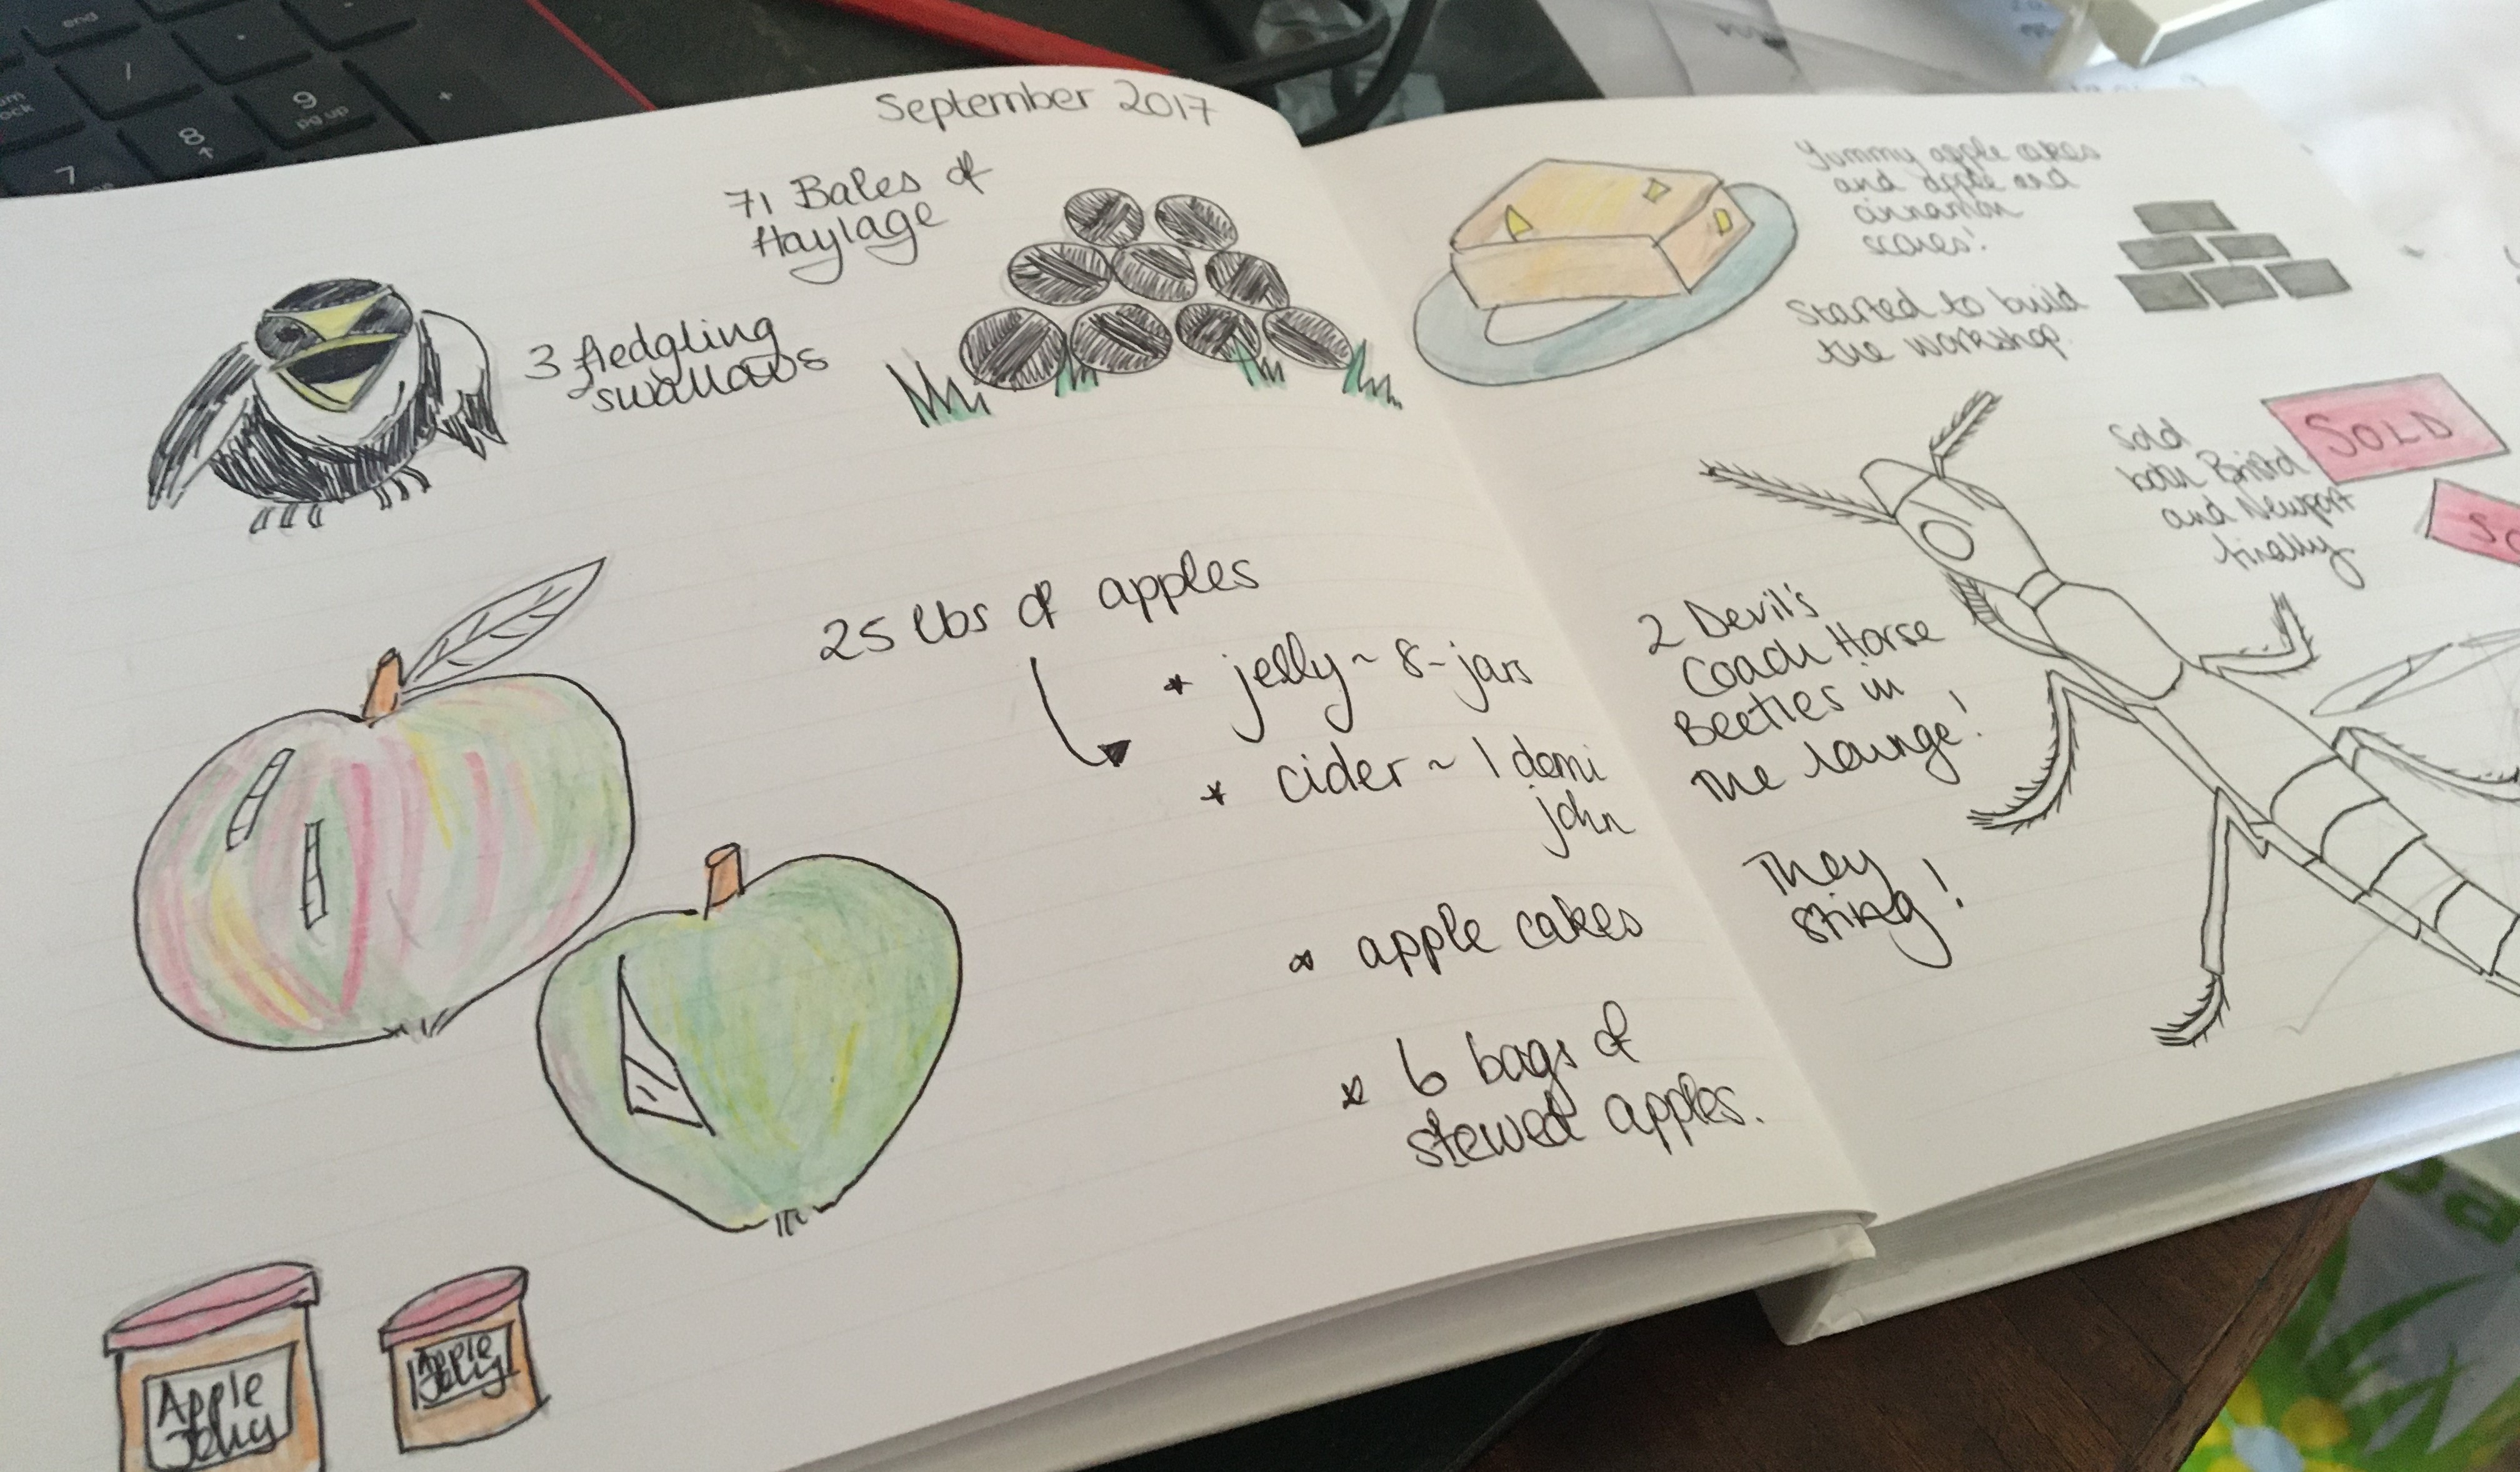 September 2017
71 Bales of
Haylage
3 fledgling
swallows
25 lbs of apples
* jelly ~ 8-jars
* cider ~ 1 demi
john
* apple cakes
* 6 bags of
stewed apples.
Apple
Jelly
Apple
Jelly
Yummy apple cakes
and apple and
cinnamon
scones!
Started to build
the workshop.
Sold
both Bristol
and Newport
finally
SOLD
SO
2 Devil's
Coach Horse
Beetles in
the lounge!
They
sting!
end
/
7
8
9
pg up
+